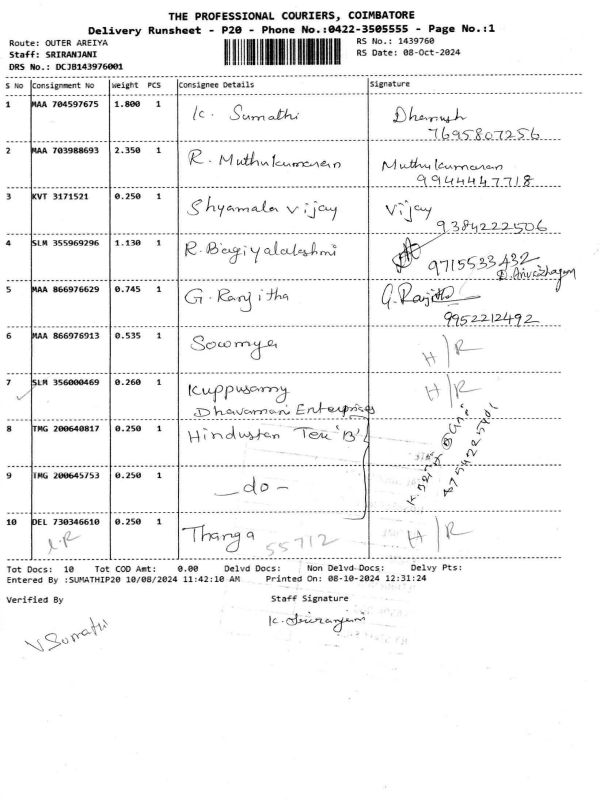 THE PROFESSIONAL COURIERS, COIMBATORE
Delivery Runsheet - P20 - Phone No.:0422-3505555 - Page No.:1
Route: OUTER AREIYA RS No.: 1439760
Staff: SRIRANJANI RS Date: 08-Oct-2024
DRS No.: DCJB143976001
S No Consignment No Weight PCS Consignee Details Signature
1 MAA 704597675 1.800 1 K. Sumathi Dhanush
7695807256
2 MAA 703988693 2.350 1 R. Muthukumaran Muthukumaran
9944447718
3 KVT 3171521 0.250 1 Shyamala Vijay Vijay
9384222506
4 SLM 355969296 1.130 1 R. Bagiyalakshmi
9715533432
5 MAA 866976629 0.745 1 G. Ranjitha G. Ranjitha
9952212492
6 MAA 866976913 0.535 1 Sowmya H/R
7 SLM 356000469 0.260 1 Kuppusamy H/R
Dhavamani Enterprises
8 TMG 200640817 0.250 1 Hindustan Tex 'B'
9 TMG 200645753 0.250 1 -do-
10 DEL 730346610 0.250 1 Thanga 55712 H/R
Tot Docs: 10 Tot COD Amt: 0.00 Delvd Docs: Non Delvd Docs: Delvy Pts:
Entered By :SUMATHIP20 10/08/2024 11:42:10 AM Printed On: 08-10-2024 12:31:24
Verified By Staff Signature
V Sumathi K. Sriranjani